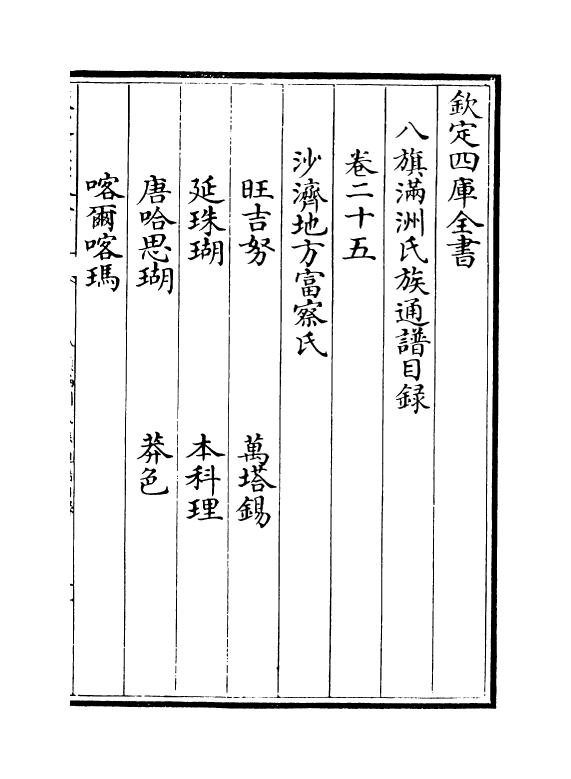 欽定四庫全書
八旗滿洲氏族通譜目録
卷二十五
沙濟地方富察氏
旺吉努　萬塔錫
延珠瑚　本科理
唐哈思瑚　莽色
喀爾喀瑪